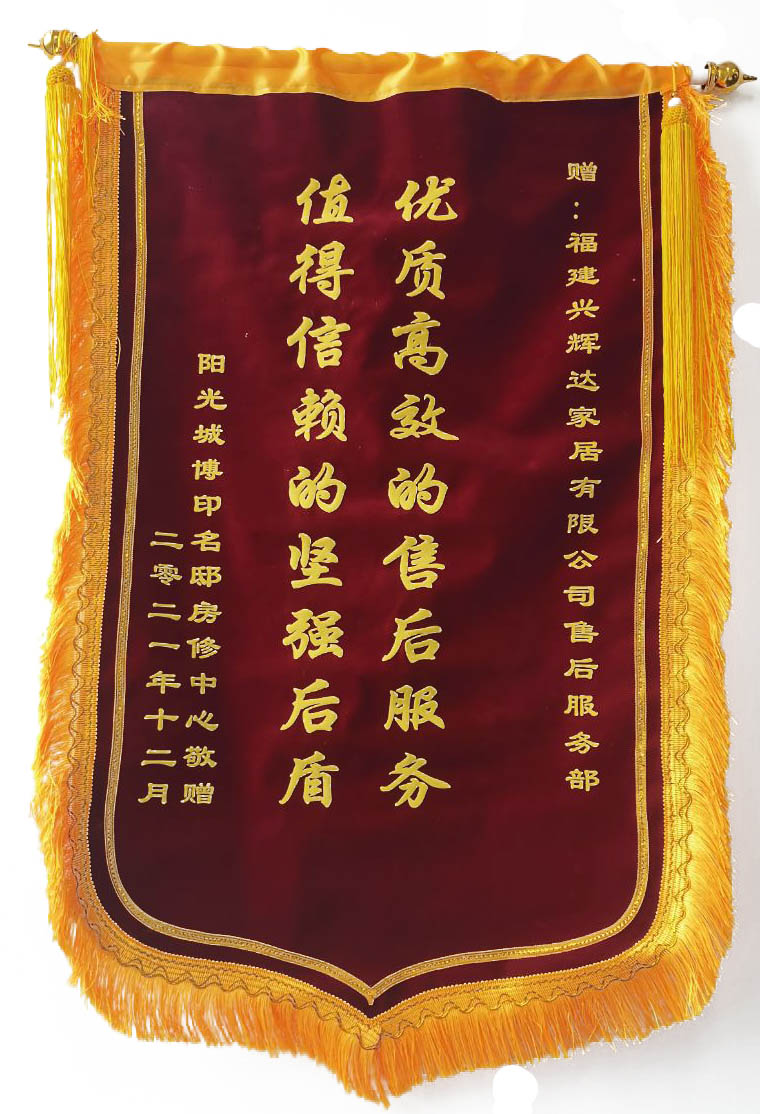 赠：福建兴辉达家居有限公司售后服务部
优质高效的售后服务
值得信赖的坚强后盾
阳光城博印名邸房修中心敬赠
二零二一年十二月